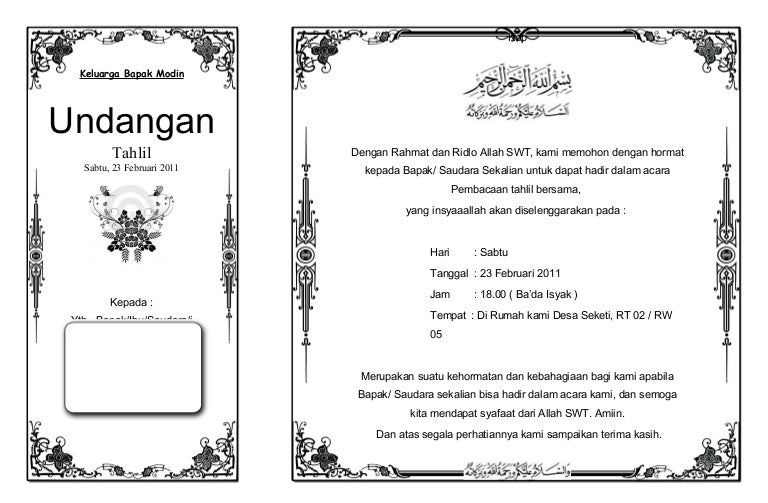 Keluarga Bapak Modin
Undangan
Tahlil
Sabtu, 23 Februari 2011
Kepada :
بسم الله الرحمن الرحيم
السلام عليكم ورحمة الله وبركاته
Dengan Rahmat dan Ridlo Allah SWT, kami memohon dengan hormat
kepada Bapak/ Saudara Sekalian untuk dapat hadir dalam acara
Pembacaan tahlil bersama,
yang insyaaallah akan diselenggarakan pada :
Hari : Sabtu
Tanggal : 23 Februari 2011
Jam : 18.00 ( Ba’da Isyak )
Tempat : Di Rumah kami Desa Seketi, RT 02 / RW
05
Merupakan suatu kehormatan dan kebahagiaan bagi kami apabila
Bapak/ Saudara sekalian bisa hadir dalam acara kami, dan semoga
kita mendapat syafaat dari Allah SWT. Amiin.
Dan atas segala perhatiannya kami sampaikan terima kasih.
والسلام عليكم ورحمة الله وبركاته